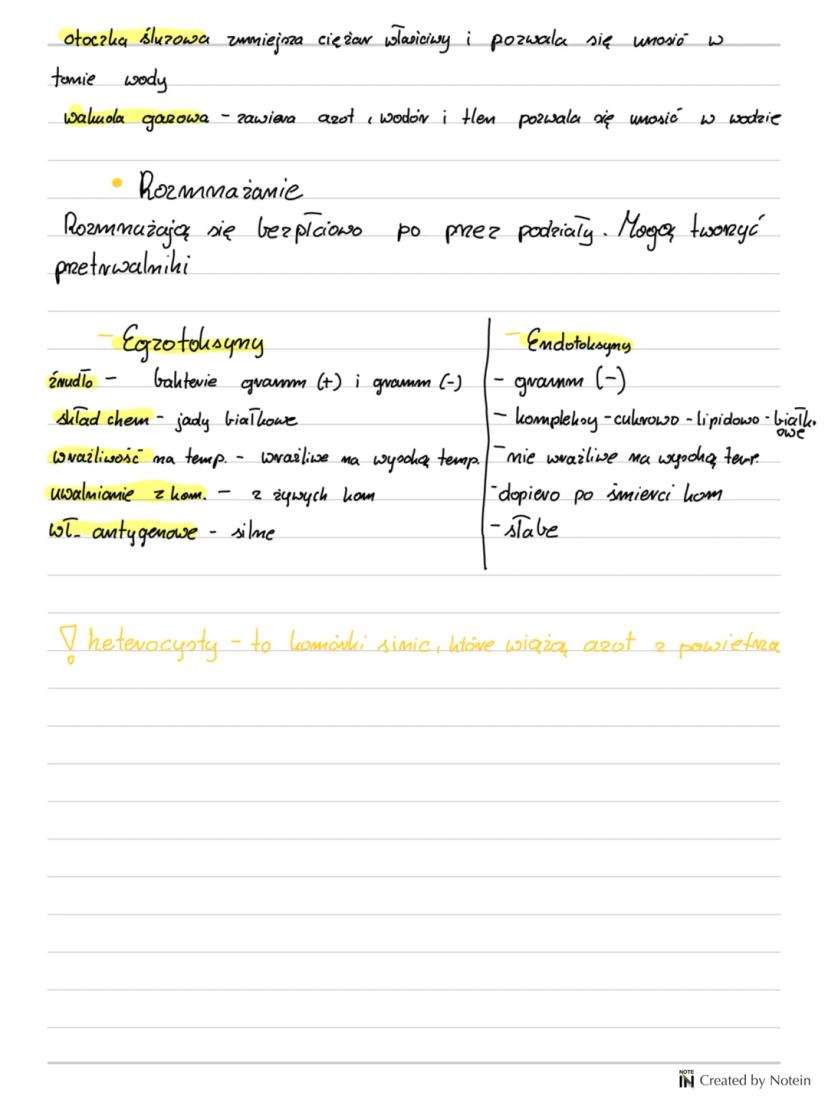 otoczka śluzowa zmniejsza ciężar właściwy i pozwala się unosić w
tonie wody
wakuola gazowa - zawiera azot, wodór i tlen pozwala się unosić w wodzie
• Rozmnażanie
Rozmnażają się bezpłciowo po przez podziały. Mogą tworzyć
przetrwalniki
- Egzotoksyny
źródło - bakterie gramm (+) i gramm (-)
skład chem - jady białkowe
wrażliwość na temp. - wrażliwe na wysoką temp.
uwalnianie z kom. - z żywych kom
wł. antygenowe - silne
- Endotoksyny
- gramm (-)
- kompleksy - cukrowo - lipidowo - białk.
owe
- nie wrażliwe na wysoką temp.
- dopiero po śmierci kom
- słabe
! heterocysty - to komórki sinic, które wiążą azot z powietrza
NOTE IN Created by Notein